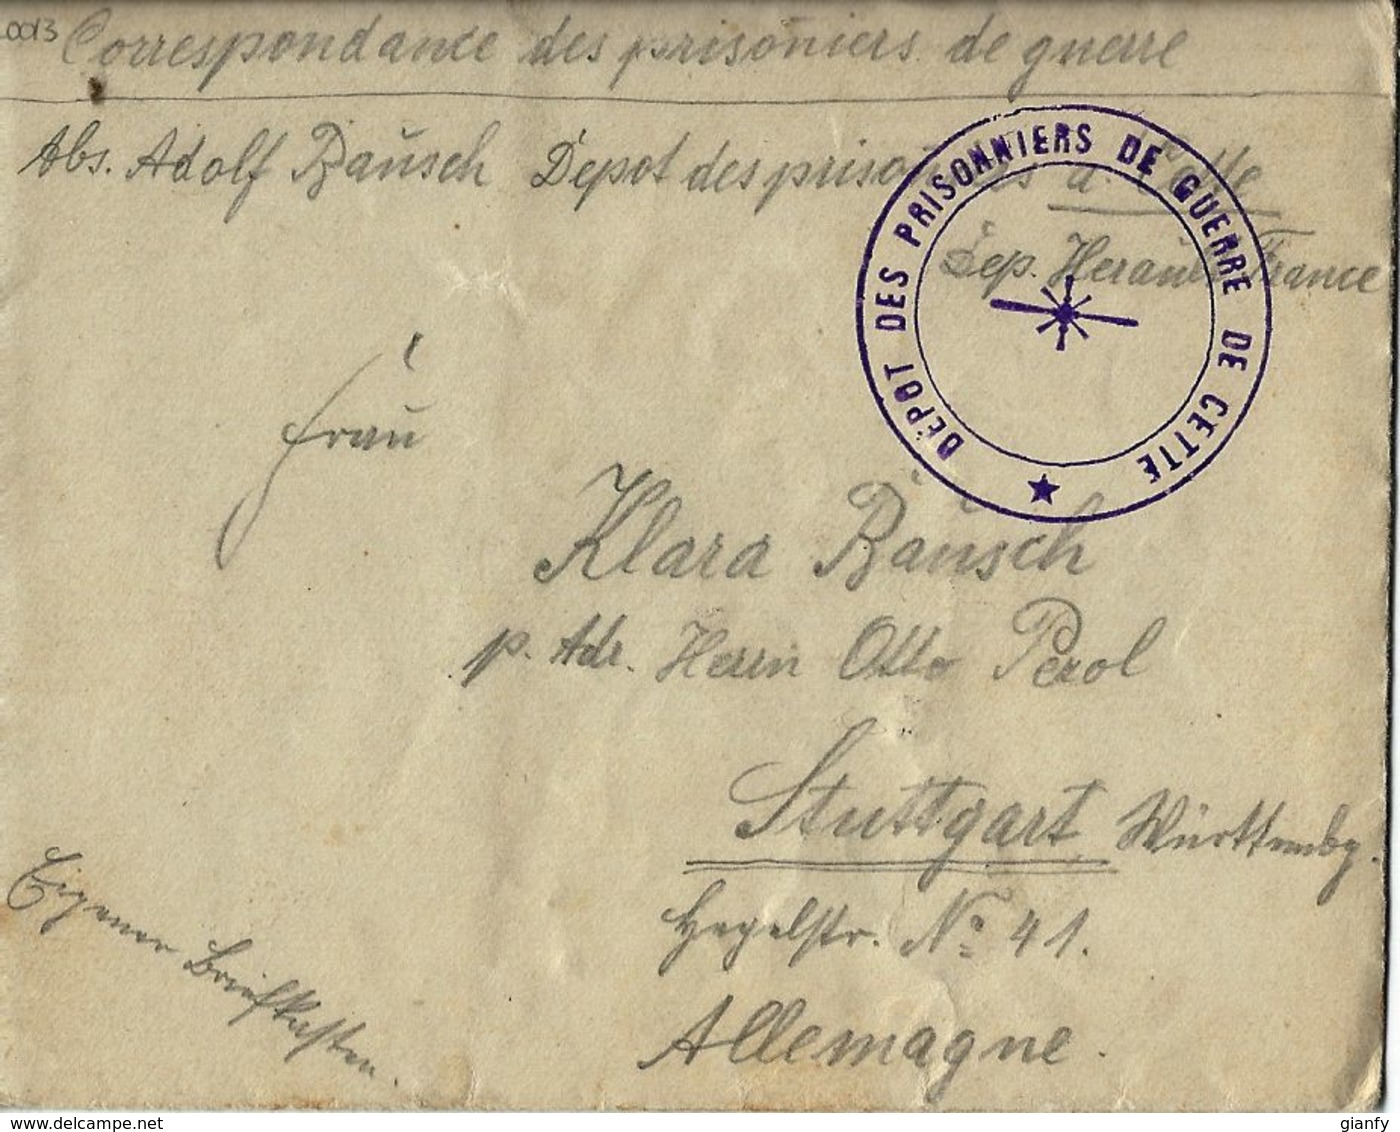 0013
Correspondance des prisoniers de guerre
Abs. Adolf Bausch Depot des prisoniers à Cette
Dep. Herault France
DÉPOT DES PRISONNIERS DE GUERRE DE CETTE
Frau
Klara Bausch
p. Adr. Herrn Otto Perol
Stuttgart Württembg.
Hegelstr. No 41.
Allemagne.
Eigener Briefkasten.
www.delcampe.net
gianfy